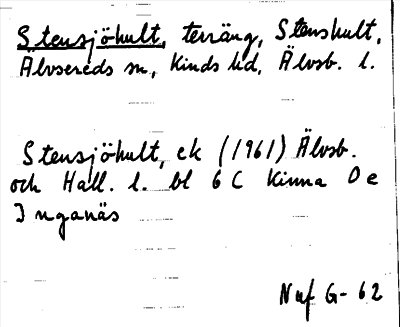 Stensjöhult, terräng, Stenshult,
Älvsereds sn, Kinds hd, Älvsb. l.
Stensjöhult, ek (1961) Älvsb.
och Hall. l. bl 6 C Kinna 0 e
Inganäs
Naf G-62